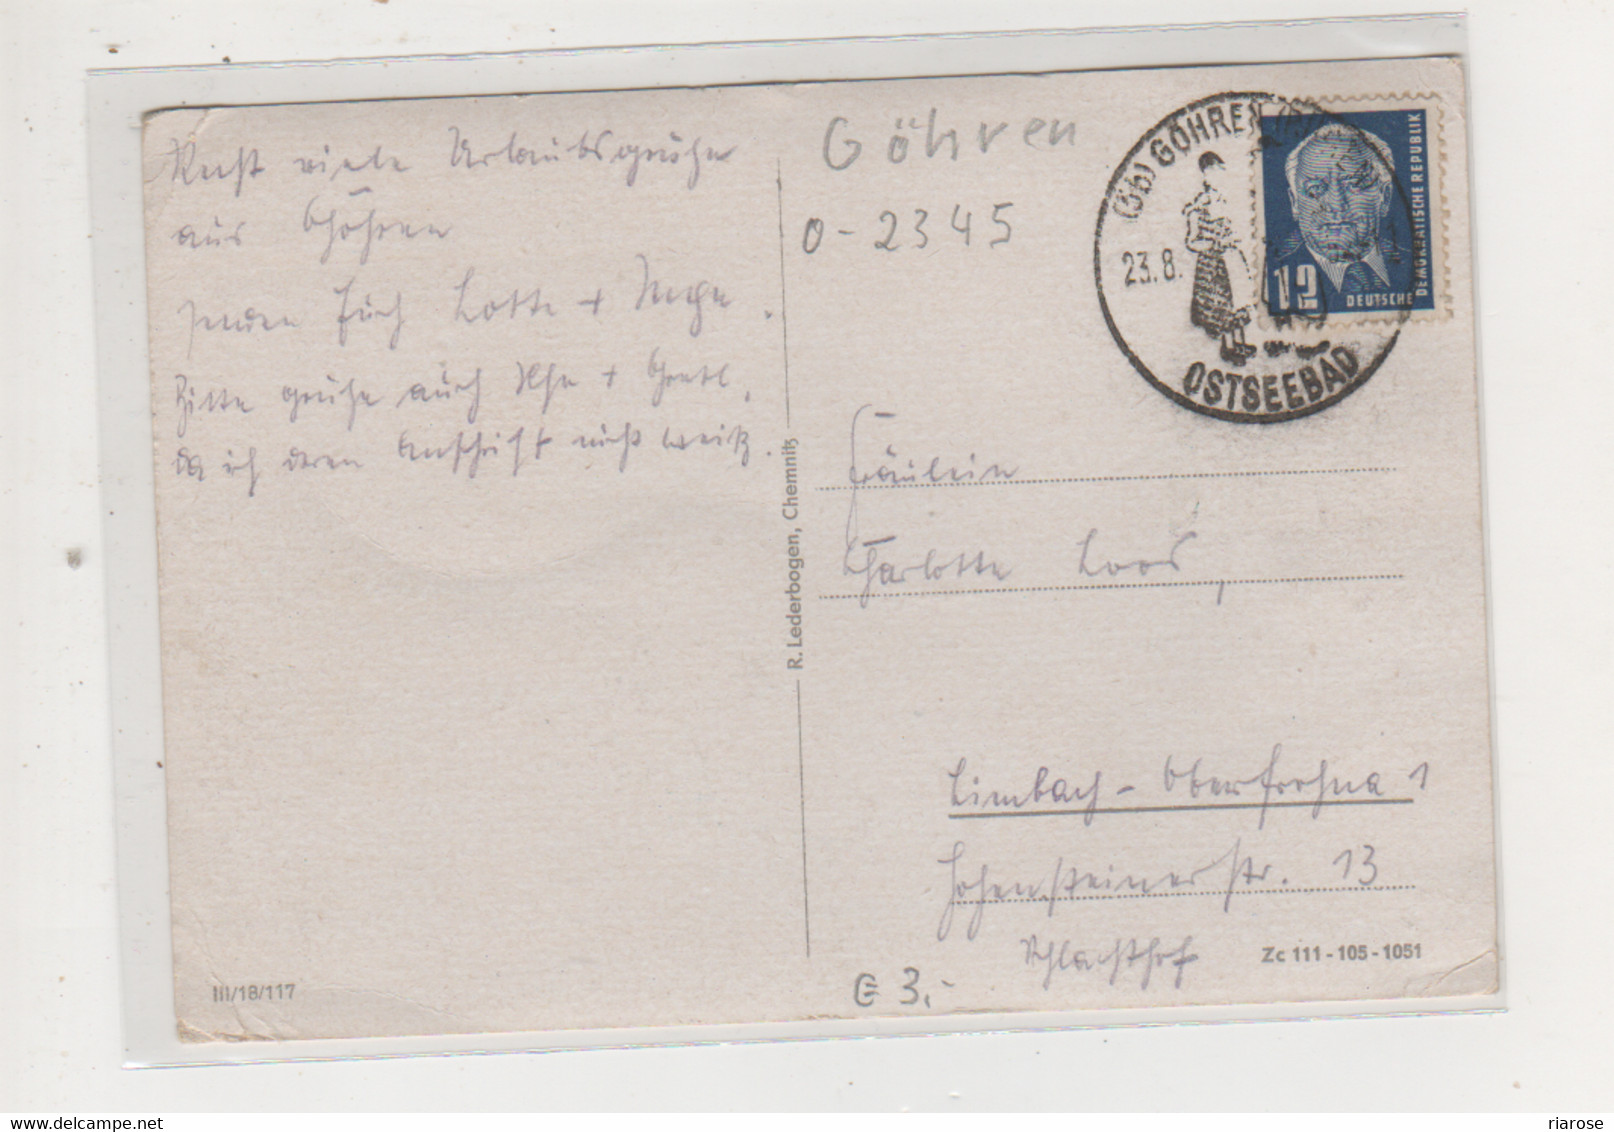 Recht viele Urlaubsgrüße
aus Göhren
senden Euch Lotte +
Bitte grüße auch Ilse + Gretl,
da ich deren Anschrift nicht weiß.
III/18/117
R. Lederbogen, Chemnitz
Göhren
0-2345
(3b) GÖHREN
23.8.
OSTSEEBAD
12
DEUTSCHE
DEMOKRATISCHE REPUBLIK
Fräulein
Charlotte Loos,
Limbach-Oberfrohna 1
Hohensteinerstr. 13
Schlachthof
Zc 111-105-1051
€ 3,-
delcampe.net
riarose